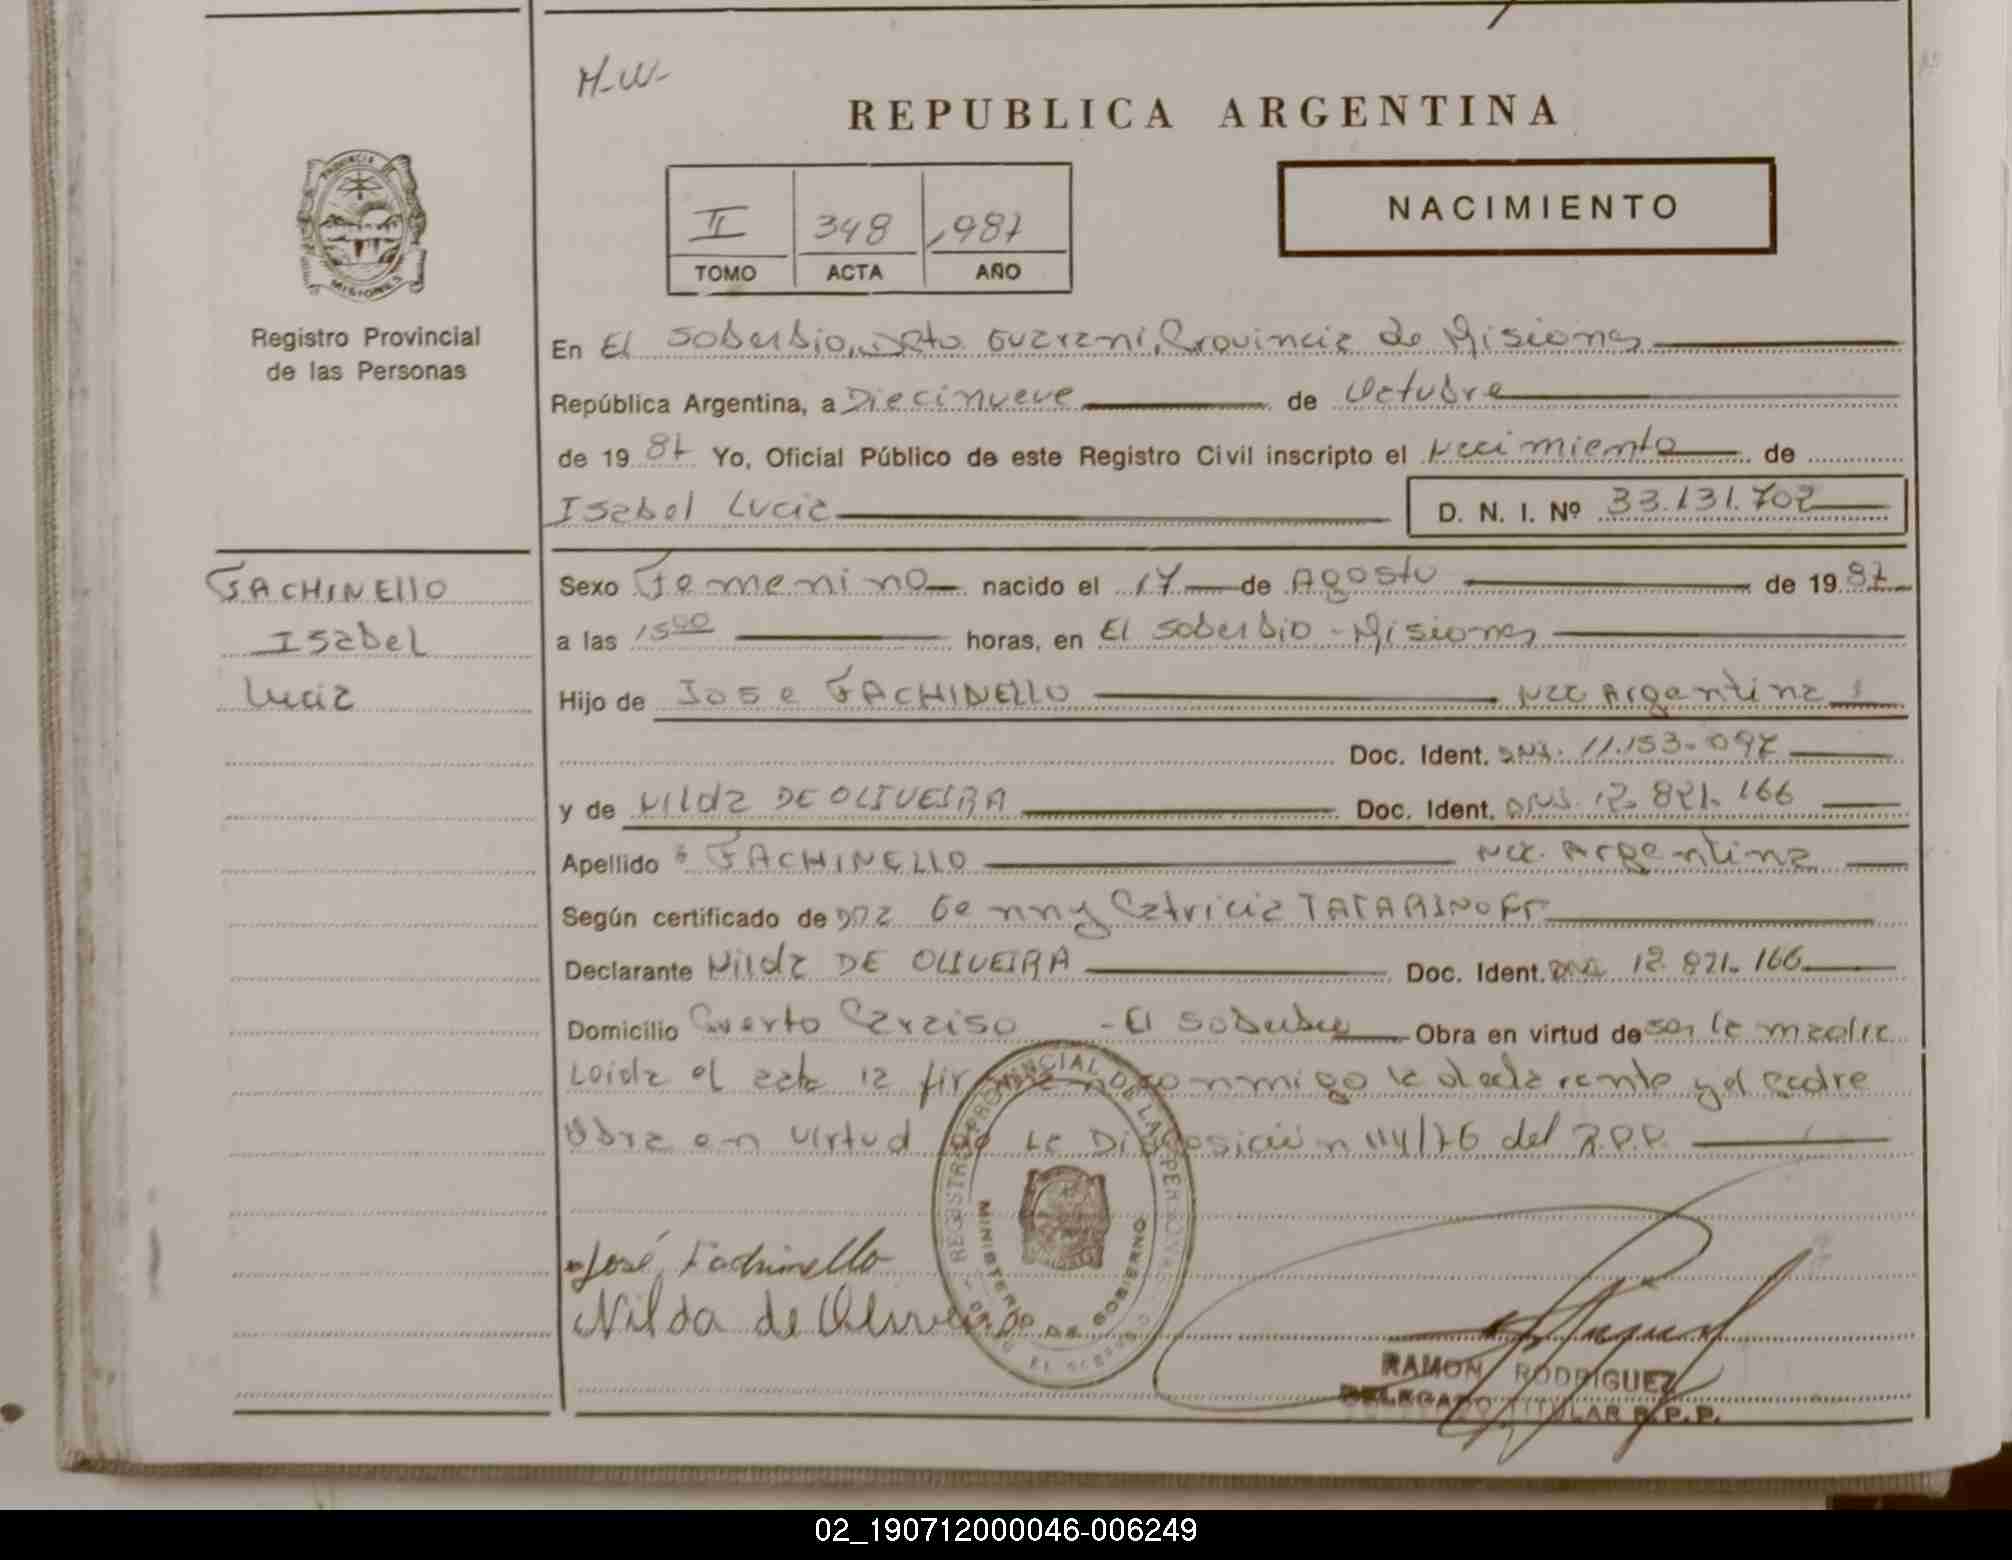 H-W-
REPUBLICA ARGENTINA
PROVINCIA
MISIONES
II 348 1987
TOMO ACTA AÑO
NACIMIENTO
Registro Provincial
de las Personas
En El Soberbio, Dpto Guarani, Provincia de Misiones
República Argentina, a Diecinueve de Octubre
de 19 87 Yo, Oficial Público de este Registro Civil inscripto el Nacimiento de
Isabel Lucia D. N. I. Nº 33.131.702
FACHINELLO
Isabel
Lucia
Sexo Femenino nacido el 17 de Agosto de 19 87
a las 15 00 horas, en El Soberbio - Misiones
Hijo de Jose FACHINELLO Nac Argentina
Doc. Ident. DNI. 11.153.097
y de Nilda DE OLIVEIRA Doc. Ident. DNI. 12.821.166
Apellido FACHINELLO Nac. Argentina
Según certificado de Dra Genny Patricia TATARINOFF
Declarante Nilda DE OLIVEIRA Doc. Ident. DNI 12.821.166
Domicilio Puerto Paraiso - El Soberbio Obra en virtud de ser la madre
Leida el acta la firman conmigo la declarante y el padre
Obra en virtud de la Disposición 114/76 del R.P.P.
REGISTRO PROVINCIAL DE LAS PERSONAS
MINISTERIO DE GOBIERNO
EL SOBERBIO
José Fachinello
Nilda de Oliveira
RAMON RODRIGUEZ
DELEGADO TITULAR R.P.P.
02_190712000046-006249